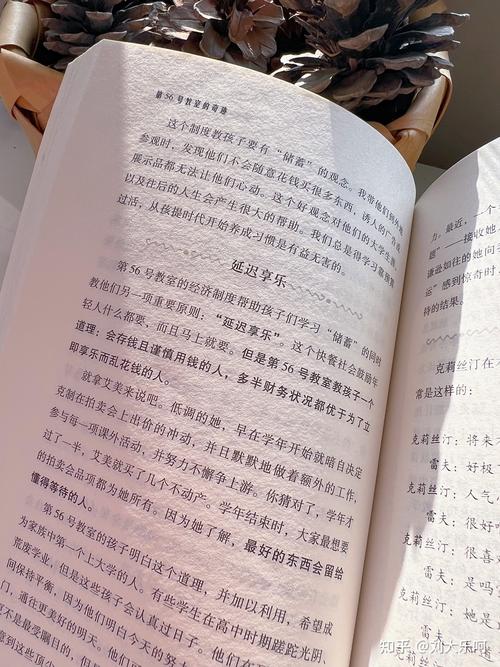 第56号教室的奇迹
这个制度教孩子要有“储蓄”的观念。我带他们到外地
参观时，发现他们不会随意花钱买很多东西，诱人的广告或
展示品都无法让他们心动。这个好观念对他们的大学生涯，
以及往后的人生会产生很大的帮助。我们总是得学习量
过活，从孩提时代开始养成习惯是有益无害的。
延迟享乐
第56号教室的经济制度帮助孩子们学习“储蓄”的同时
教他们另一项重要原则：“延迟享乐”。这个快餐社会鼓励年
轻人什么都要，而且马上就要。但是第56号教室教孩子一个
道理：会存钱且谨慎用钱的人，多半财务状况都优于为了立
即享乐而乱花钱的人。
就拿艾美来说吧。低调的她，早在学年开始就暗自决定
克制在拍卖会上出价的冲动，并且默默地做着额外的工作，
参与每一项课外活动，并努力不懈争上游。你猜对了，学年才
过了一半，艾美就买了几个不动产。学年结束时，大家最想要
的拍卖会品项都为她所有。因为她了解，最好的东西会留给
懂得等待的人。
第56号教室的孩子明白这个道理，并加以利用，希望成
为家族中第一个上大学的人。有些学生在高中时期蹉跎光阴、
荒废学业，但是这些孩子会认真过日子。他们在
间保持平衡，因为他们明白今天的努
门，通往更好的明天。他们
不是最受瞩目的，但
意到这些顶尖
力。最近，一个
题”——接收她
谦讼如往的她问
运”感到惊奇时，
待的结果。
克莉丝汀在
常是这样的：
克莉丝汀：将来
雷夫：好极
克莉丝汀：人气
雷夫：很好
克莉丝汀：很喜
雷夫：是吗
克莉丝汀：她是
雷夫：
知乎 @刘大乐呵